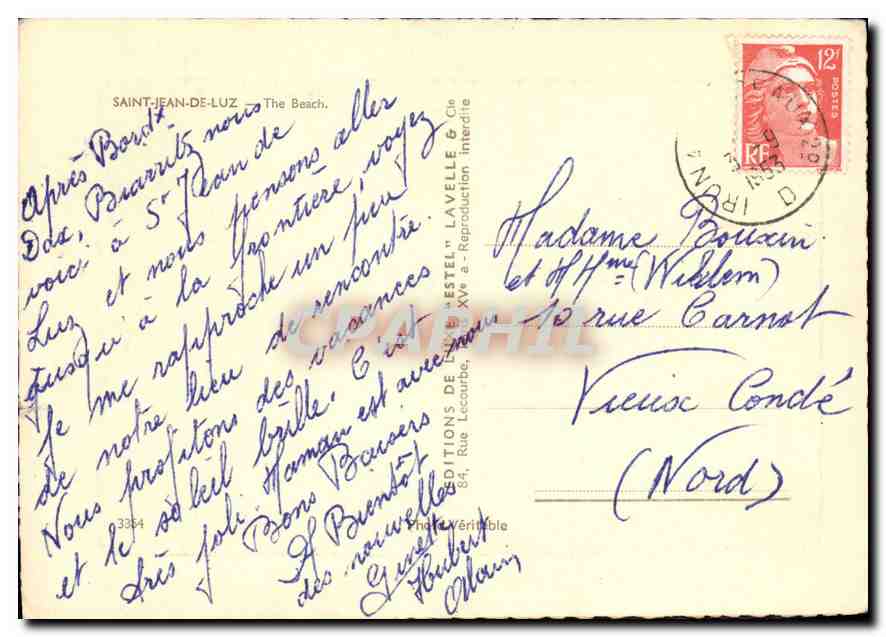 SAINT-JEAN-DE-LUZ — The Beach.
Après Bordx
Dax, Biarritz nous
voici à St Jean de
Luz et nous pensons aller
jusqu'à la frontière, voyez
Je me rapproche un peu
de notre lieu de rencontre.
Nous profitons des vacances
et le soleil brille. C'est
très joli. Maman est avec nous
Bons Baisers
A Bientôt
des nouvelles
Ginette
Hubert
Alain
3354
Photo Véritable
EDITIONS DE "ESTEL" LAVELLE & Cie
84, Rue Lecourbe, XVe a - Reproduction interdite
12F
POSTES
RF
IRUN
1953
Madame Bouxin
et Mme (Wiklem)
10 rue Carnot
Vieux Condé
(Nord)
CPAPHIL